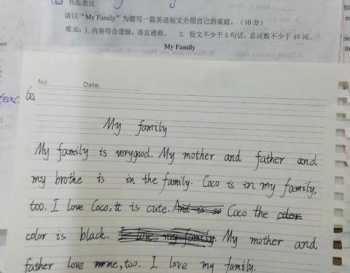 书面表达
请以“My Family”为题写一篇英语短文介绍自己的家庭。(10分)
要求:1. 内容符合逻辑,语言通顺。 2. 短文不少于5句话,总词数不少于40词。
My Family
No.
Date.
My family
My family is verygood. My mother and father and
my brothe is in the family. Coco is in my family,
too. I love Coco, it is cute. Coco the
color is black. My mother and
father love me, too. I love my family.